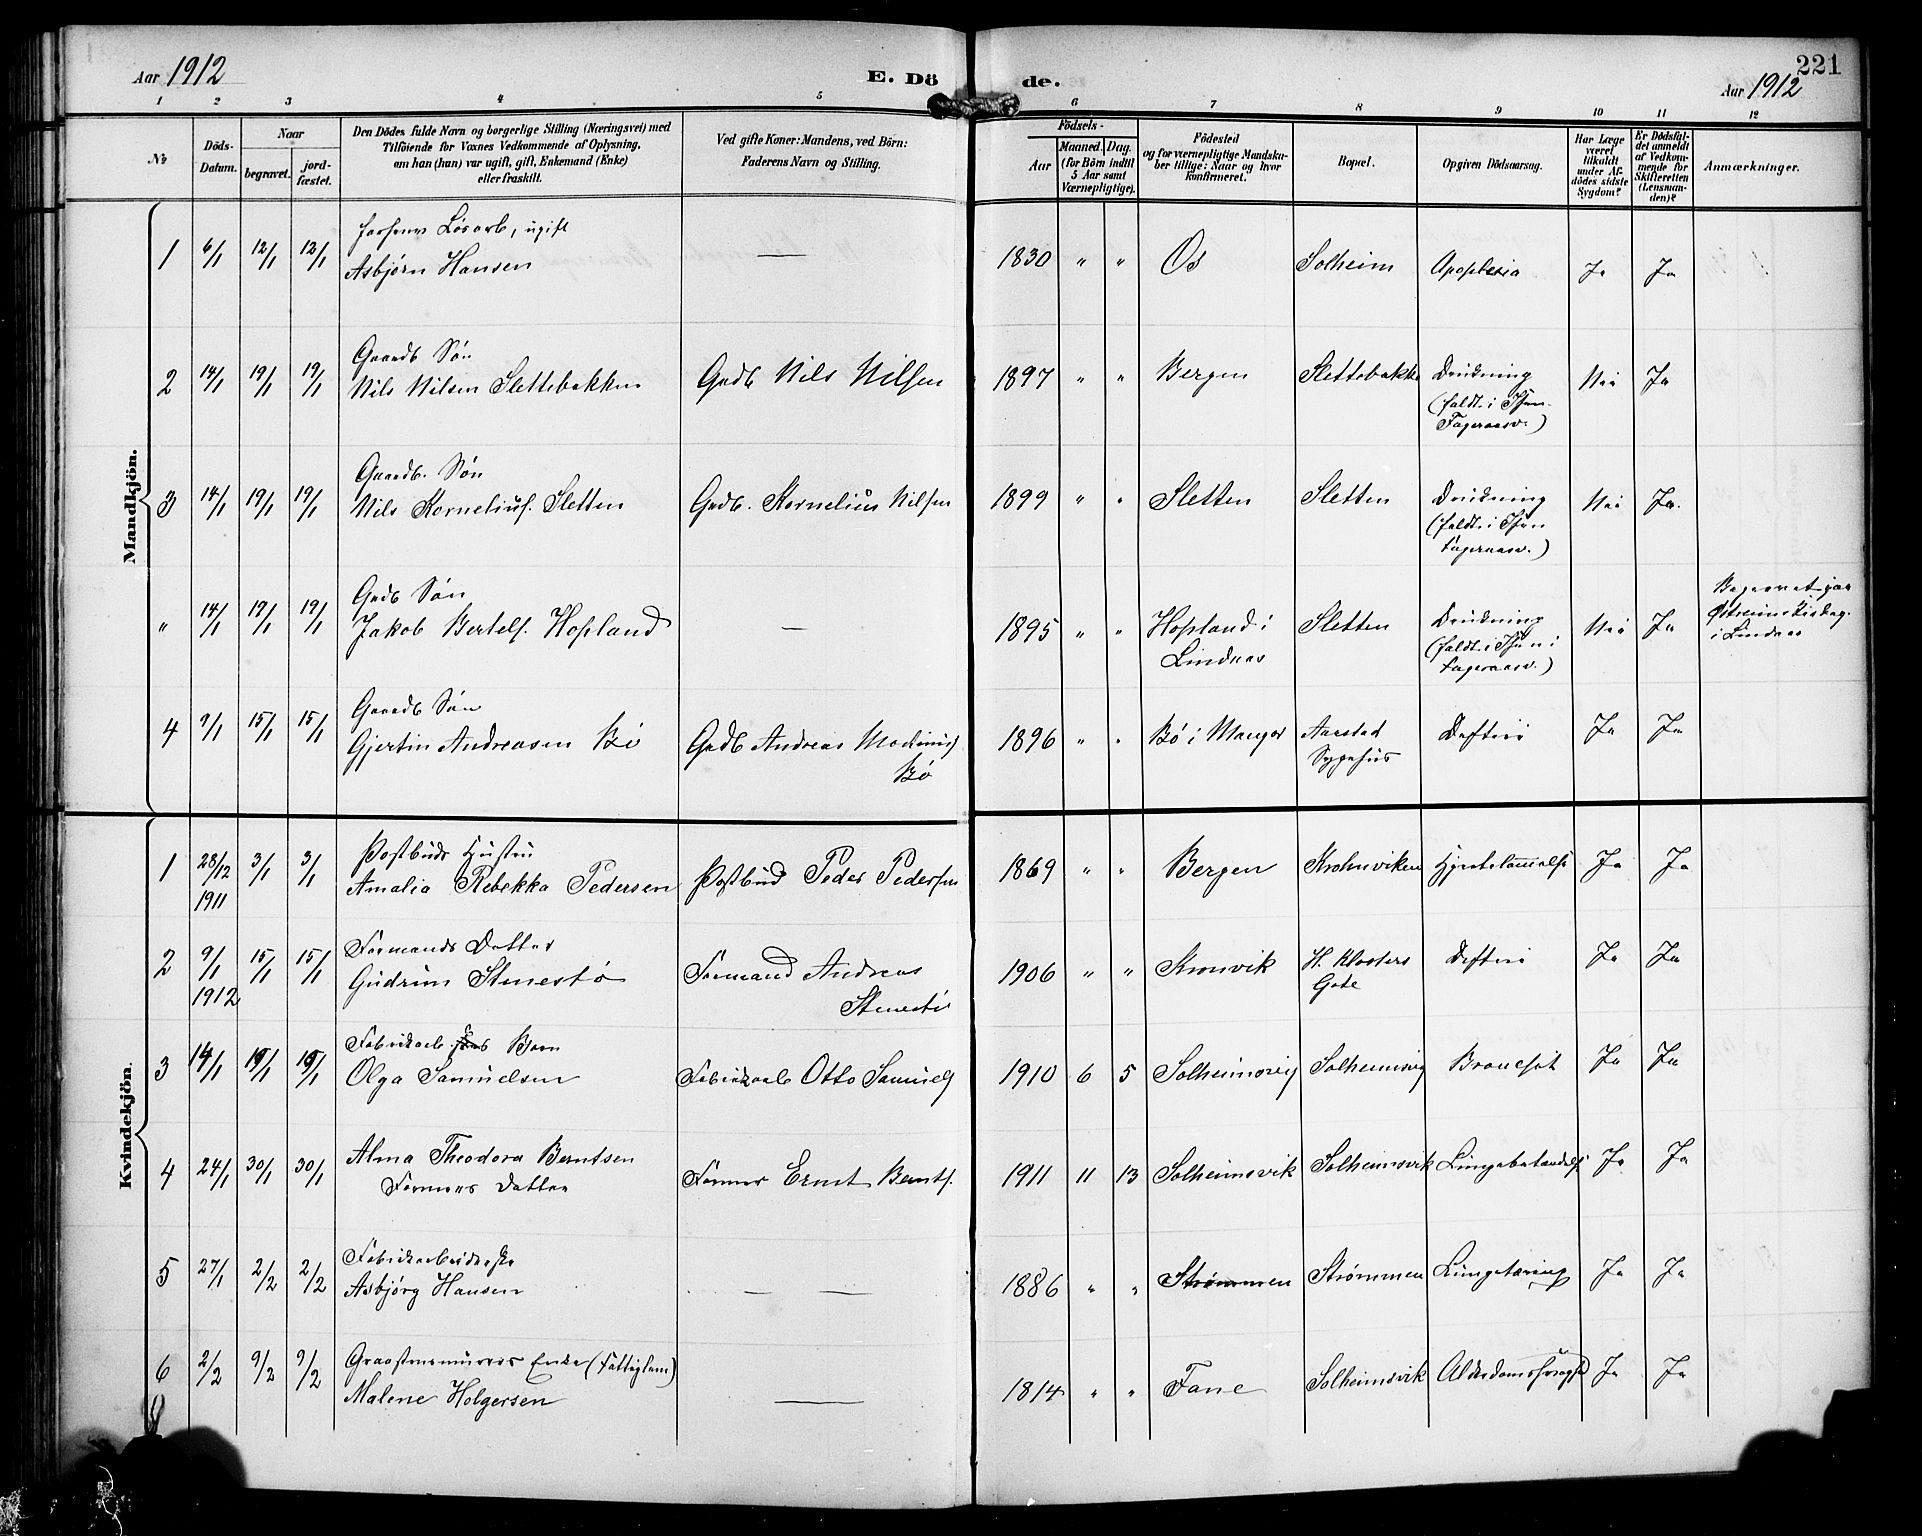 Aar 1912
E. Dö
de.
221
Aar 1912
1 2 3 4 5 6 7 8 9 10 11 12
No
Döds-
Datum.
Naar
begravet.
jord-
fæstet.
Den Dödes fulde Navn og borgerlige Stilling (Næringsvei) med
Tilföiende for Voxnes Vedkommende af Oplysning,
om han (hun) var ugift, gift, Enkemand (Enke)
eller fraskilt.
Ved gifte Koner: Mandens, ved Börn:
Faderens Navn og Stilling.
Födsels-
Aar
Maaned. Dag.
(for Börn indtil
5 Aar samt
Værnepligtige).
Födested
og for værnepligtige Mandsku-
ber tillige: Naar og hvor
konfirmeret.
Bopæl.
Opgiven Dödsaarsag.
Har Læge
været
tilkaldt
under Af-
dödes sidste
Sygdom?
Er Dödsfal-
det anmeldt
af Vedkom-
mende for
Skifteretten
(Lensman-
den)?
Anmærkninger.
Mandkjön.
Løsarb, ugift
1 6/1 12/1 12/1 Asbjørn Hansen — 1830 " " Os Solheim Apoplexia Ja Ja
Gaardb Søn
2 14/1 19/1 19/1 Nils Nilsen Slettebakken Grdb Nils Nilsen 1897 " " Bergen Slettebakk Drukning Nei Ja
(faldt i
Fageraasv.)
Gaardb. Søn
3 14/1 19/1 19/1 Nils Korneliuss. Sletten Grdb. Kornelius Nilsen 1899 " " Sletten Sletten Drukning Nei Ja.
(faldt i
Fageraasv.)
Grdb Søn
" 14/1 19/1 19/1 Jakob Bertels. Hopland — 1895 " " Hopland i Lindaas Sletten Drukning Nei Ja
(faldt i
Fageraasv.)
Begravet paa
i Lindaas
Gaardb Søn
4 9/1 15/1 15/1 Gjertin Andreasen Bø Grdb Andreas
Bø 1896 " " Bø i Manger Aarstad
Sygehus Difteri Ja Ja
Kvindekjön.
Postbuds Hustru
1 28/12 1911 3/1 3/1 Amalia Rebekka Pedersen Postbud Peder Pedersen 1869 " " Bergen Krohnviken Ja Ja
Formands Datter
2 9/1 1912 15/1 15/1 Gudrun Stenestø Formand Andreas
Stenestø 1906 " " Kronvik H. Klosters
Gate Difteri Ja Ja
Fabrikarb. Barn
3 14/1 19/1 19/1 Olga Samuelsen Fabrikarb Otto Samuels 1910 6 5 Solheimsvig Solheimsvig Ja Ja
4 24/1 30/1 30/1 Alma Theodora Berntsen
Formers Datter Former Ernst Bernts. 1911 11 13 Solheimsvik Solheimsvik Lungebetændelse Ja Ja
Fabrikarbeiderske
5 27/1 2/2 2/2 Asbjørg Hansen — — 1886 " " Strømmen Strømmen Lungetæring Ja Ja
Graastensmurers Enke (Fattiglem)
6 2/2 9/2 9/2 Malene Holgersen — 1814 " " Fane Solheimsvik Ja Ja